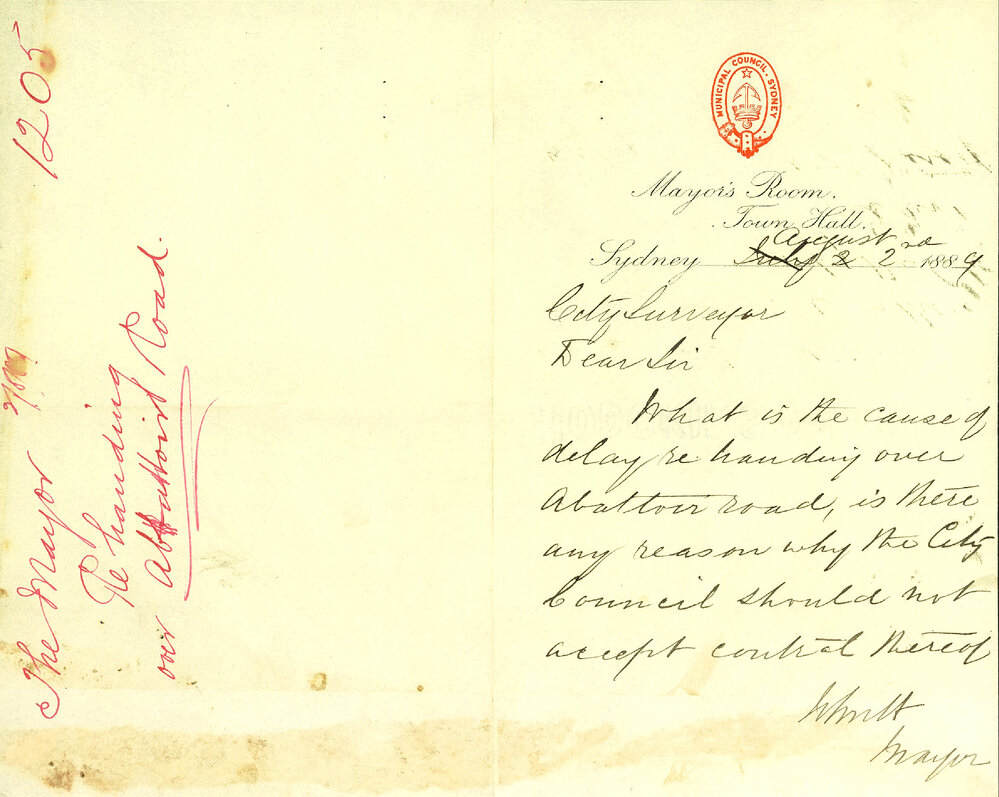 1205
2/8/89
The Mayor
Re handing
over Abattoirs Road.
MUNICIPAL COUNCIL. SYDNEY
Mayor's Room.
Town Hall.
August
Sydney July 2 2nd 1889
City Surveyor
Dear Sir
What is the cause of
delay re handing over
Abattoir road, is there
any reason why the City
Council should not
accept control thereof
Mayor